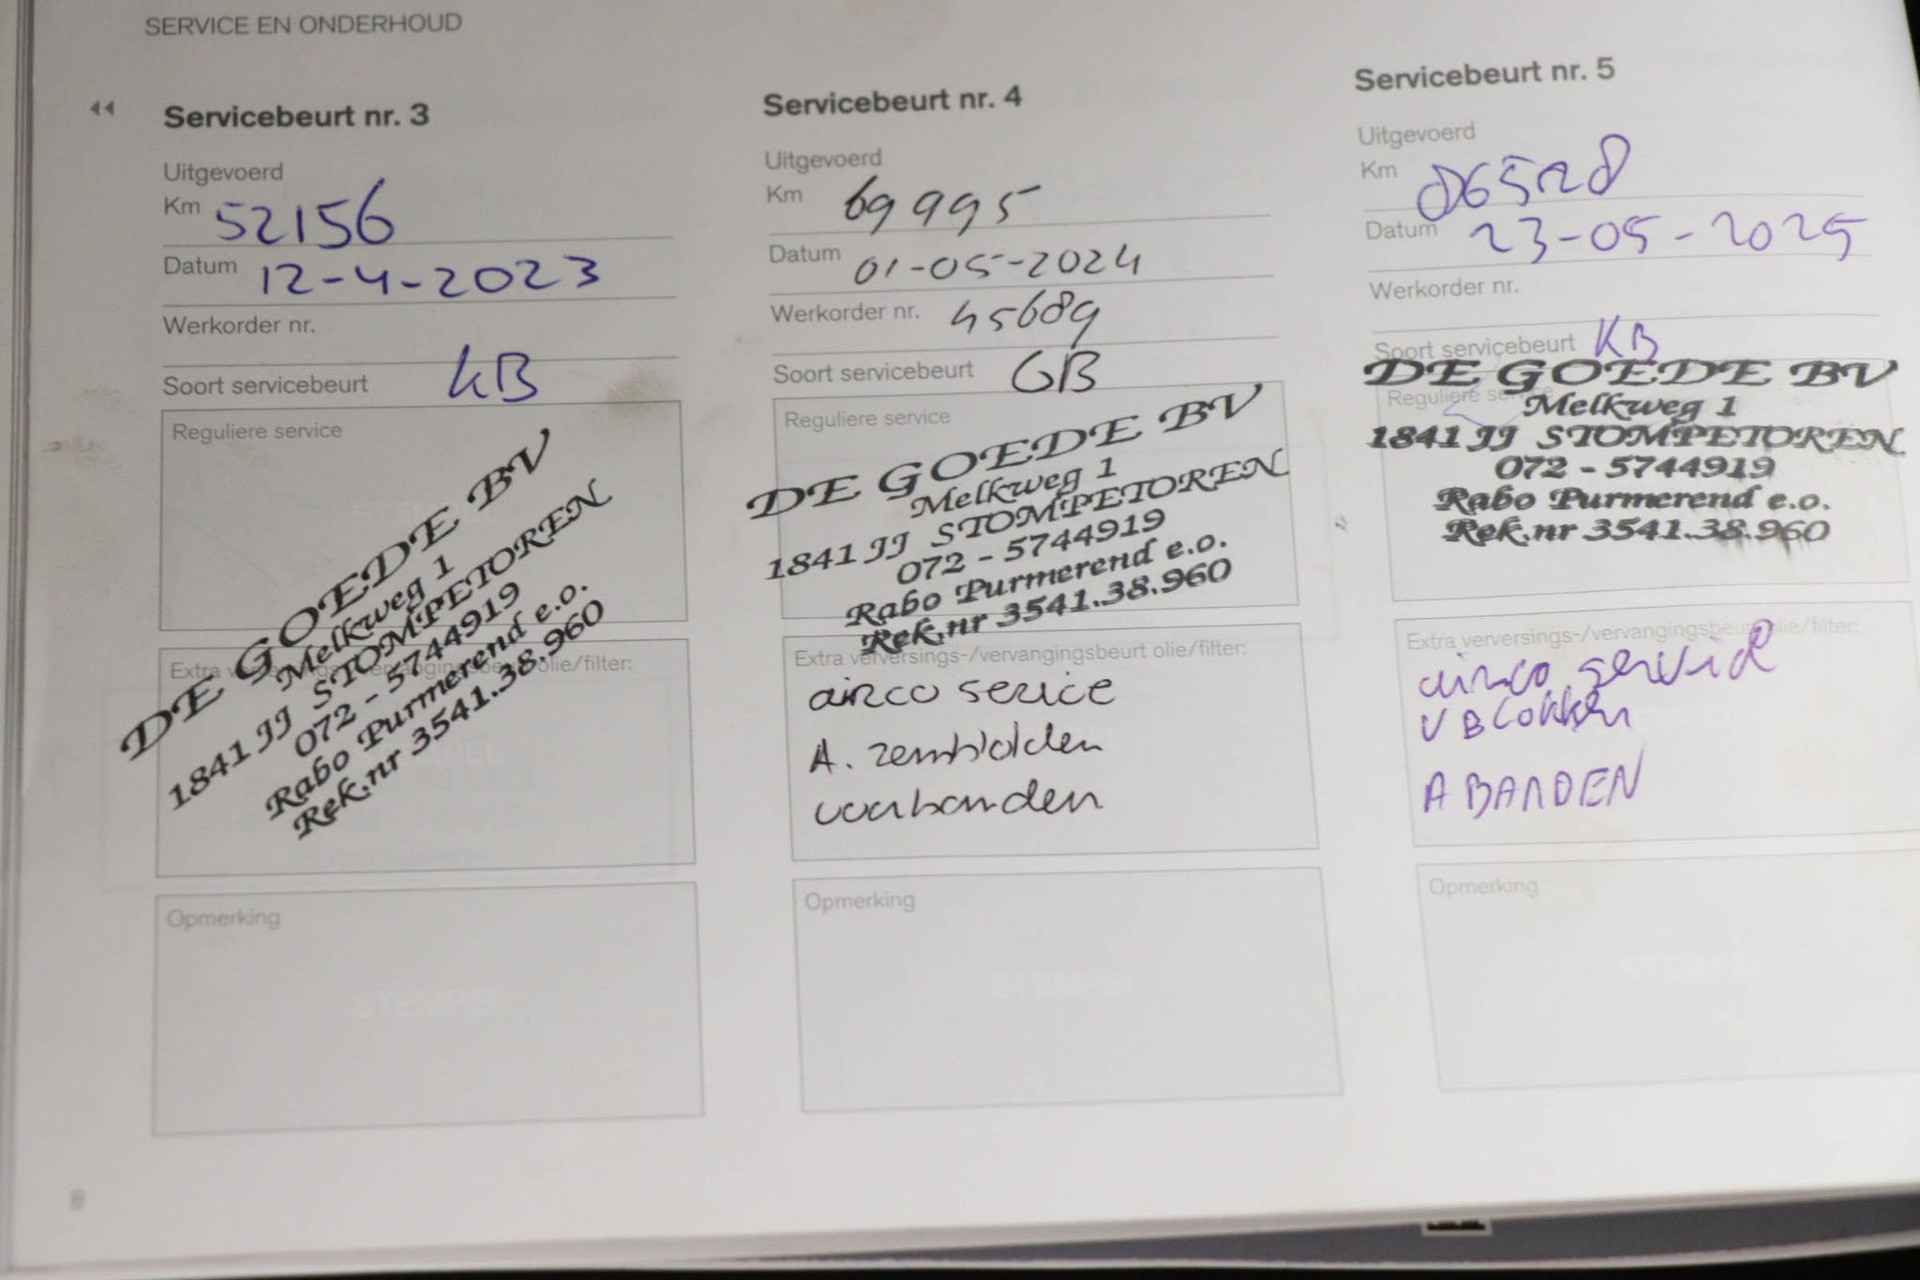 SERVICE EN ONDERHOUD
Servicebeurt nr. 3
Uitgevoerd
Km 52156
Datum 12-4-2023
Werkorder nr.
Soort servicebeurt KB
Reguliere service
DE GOEDE BV
Melkweg 1
1841 JJ STOMPETOREN
072 - 5744919
Rabo Purmerend e.o.
Rek.nr 3541.38.960
Extra olie/filter:
Opmerking
Servicebeurt nr. 4
Uitgevoerd
Km 69995
Datum 01-05-2024
Werkorder nr. 45689
Soort servicebeurt GB
Reguliere service
DE GOEDE BV
Melkweg 1
1841 JJ STOMPETOREN
072 - 5744919
Rabo Purmerend e.o.
Rek.nr 3541.38.960
Extra verversings-/vervangingsbeurt olie/filter:
airco service
A. remblokken
voorbanden
Opmerking
Servicebeurt nr. 5
Uitgevoerd
Km 86528
Datum 23-05-2025
Werkorder nr.
Soort servicebeurt KB
Reguliere service
DE GOEDE BV
Melkweg 1
1841 JJ STOMPETOREN
072 - 5744919
Rabo Purmerend e.o.
Rek.nr 3541.38.960
Extra verversings-/vervangingsbeurt olie/filter:
airco service
V Blokken
A BANDEN
Opmerking